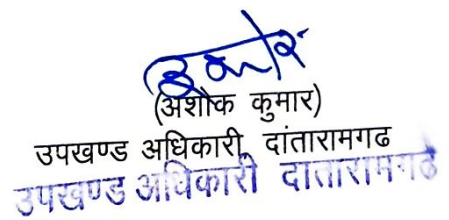 (अशोक कुमार)
उपखण्ड अधिकारी, दांतारामगढ
उपखण्ड अधिकारी दातारामगढ